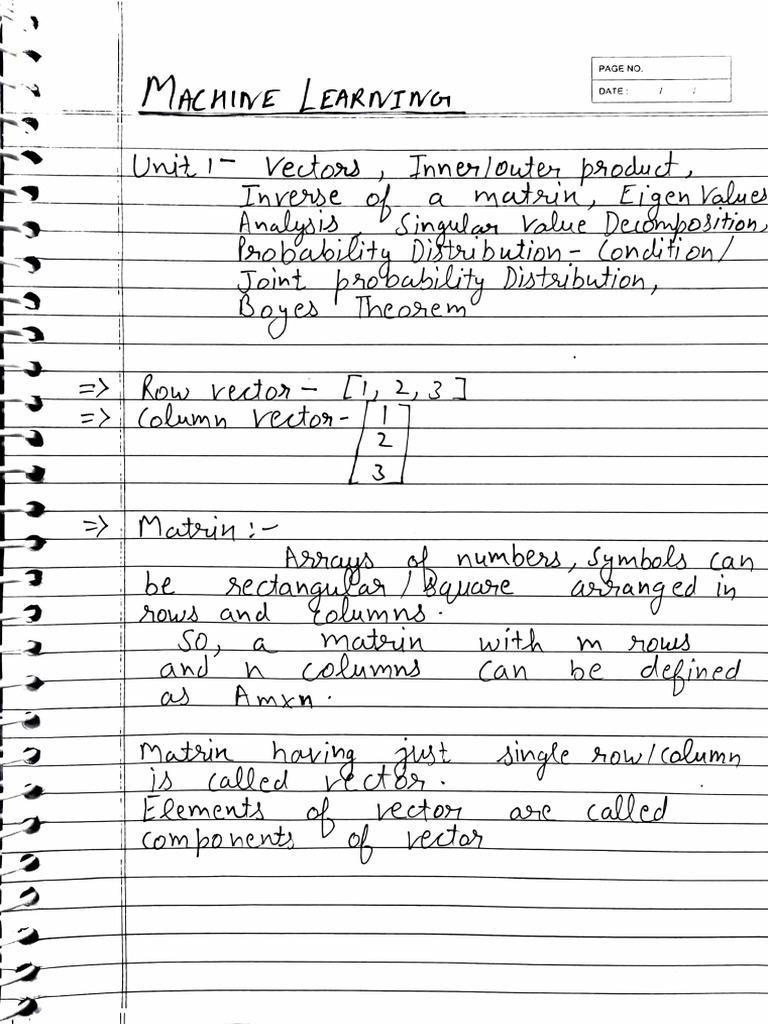 MACHINE LEARNING
PAGE NO.
DATE : / /
Unit 1 - Vectors, Inner/outer product,
Inverse of a matrin, Eigen Values
Analysis, Singular Value Decomposition,
Probability Distribution - Condition/
Joint probability Distribution,
Bayes Theorem
=> Row vector - [1, 2, 3]
=> Column vector - [1
2
3]
=> Matrin :-
Arrays of numbers, symbols can
be rectangular / square arranged in
rows and columns.
So, a matrin with m rows
and n columns can be defined
as Amxn.
Matrin having just single row/column
is called vector.
Elements of vector are called
components of vector